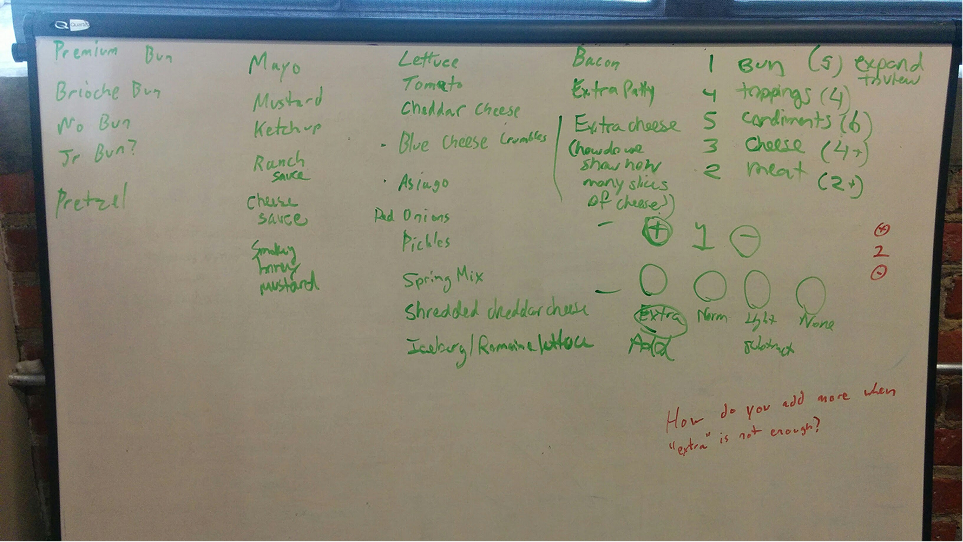 Premium Bun
Brioche Bun
No Bun
Jr Bun?
Pretzel
Mayo
Mustard
Ketchup
Ranch
sauce
Cheese
sauce
Smokey
honey
mustard
Lettuce
Tomato
Cheddar Cheese
• Blue Cheese Crumbles
• Asiago
Red Onions
Pickles
Spring Mix
Shredded cheddar cheese
Iceberg/Romaine lettuce
Bacon
Extra Patty
Extra cheese
(how do we
show how
many slices
of cheese?)
1 Bun (5) expand
to view
4 toppings (4)
5 condiments (6)
3 cheese (4+)
2 meat (2+)
- + 1 -
-
Extra Norm Light None
Add subtract
+
2
-
How do you add more when
"extra" is not enough?